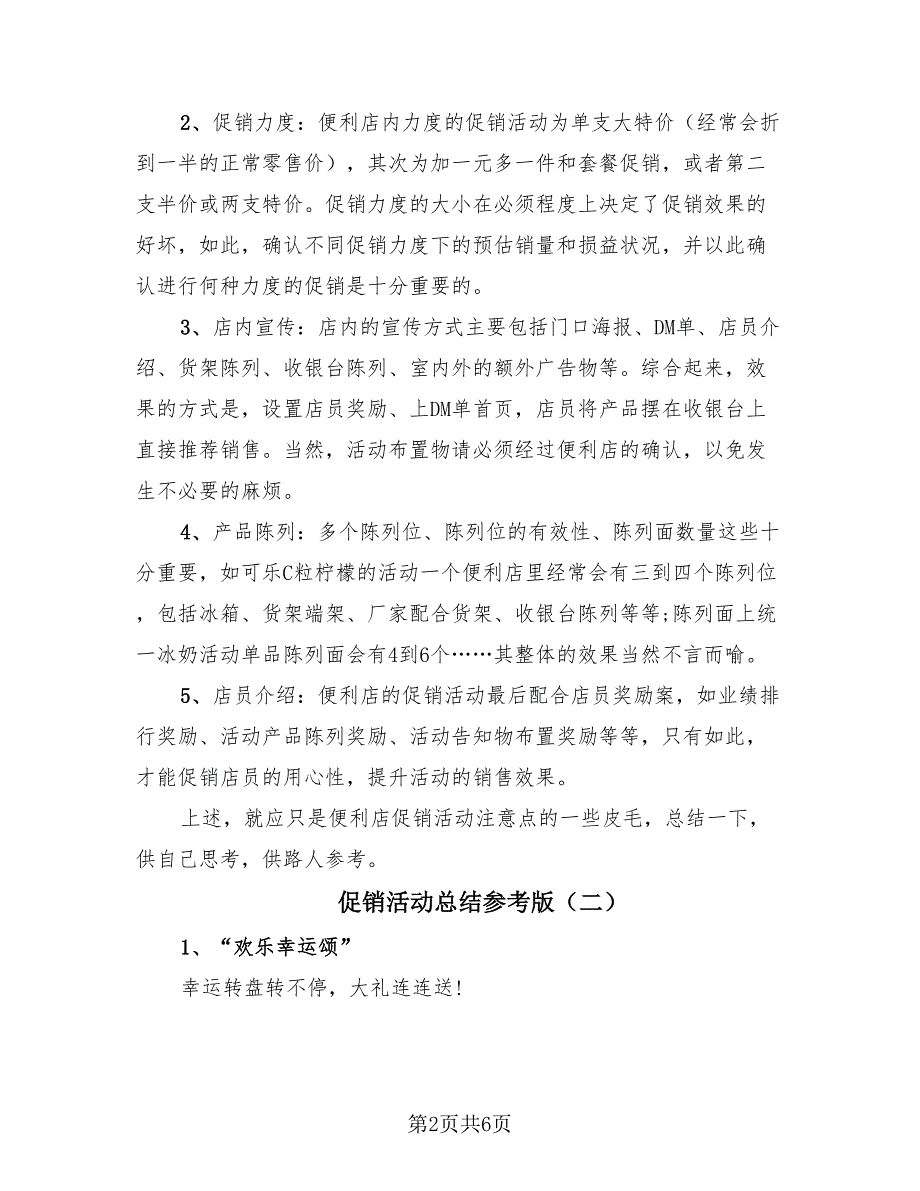 2、促销力度：便利店内力度的促销活动为单支大特价（经常会折
到一半的正常零售价），其次为加一元多一件和套餐促销，或者第二
支半价或两支特价。促销力度的大小在必须程度上决定了促销效果的
好坏，如此，确认不同促销力度下的预估销量和损益状况，并以此确
认进行何种力度的促销是十分重要的。
3、店内宣传：店内的宣传方式主要包括门口海报、DM单、店员介
绍、货架陈列、收银台陈列、室内外的额外广告物等。综合起来，效
果的方式是，设置店员奖励、上DM单首页，店员将产品摆在收银台上
直接推荐销售。当然，活动布置物请必须经过便利店的确认，以免发
生不必要的麻烦。
4、产品陈列：多个陈列位、陈列位的有效性、陈列面数量这些十
分重要，如可乐C粒柠檬的活动一个便利店里经常会有三到四个陈列位
，包括冰箱、货架端架、厂家配合货架、收银台陈列等等;陈列面上统
一冰奶活动单品陈列面会有4到6个……其整体的效果当然不言而喻。
5、店员介绍：便利店的促销活动最后配合店员奖励案，如业绩排
行奖励、活动产品陈列奖励、活动告知物布置奖励等等，只有如此，
才能促销店员的用心性，提升活动的销售效果。
上述，就应只是便利店促销活动注意点的一些皮毛，总结一下，
供自己思考，供路人参考。
促销活动总结参考版（二）
1、“欢乐幸运颂”
幸运转盘转不停，大礼连连送!
第2页共6页